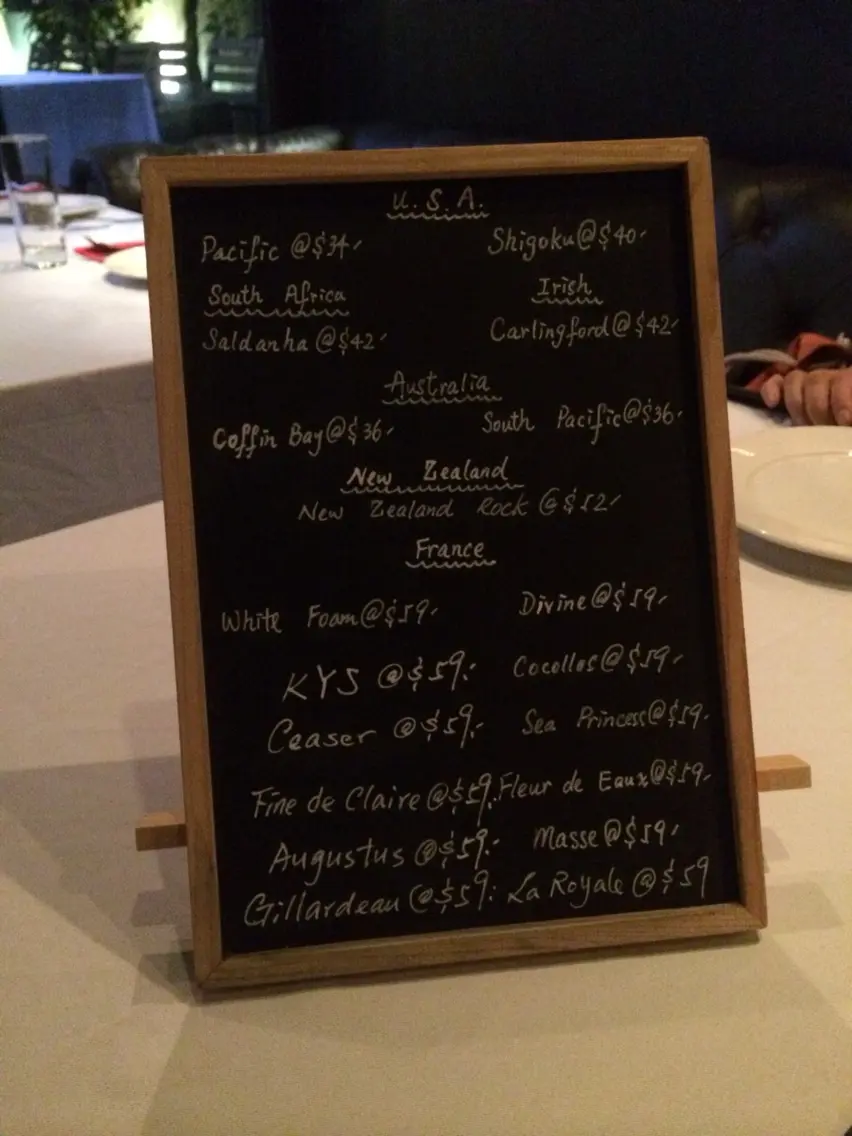 U.S.A.
Pacific @$34- Shigoku@$40-
South Africa Irish
Saldanha @$42- Carlingford@$42-
Australia
Coffin Bay@$36- South Pacific@$36-
New Zealand
New Zealand Rock @$52-
France
White Foam@$59- Divine@$59-
KYS @$59.- Cocollos@$59-
Ceaser @$59.- Sea Princess@$59-
Fine de Claire @$59.- Fleur de Eaux@$59-
Augustus @$59.- Masse@$59-
Gillardeau @$59.- La Royale @$59